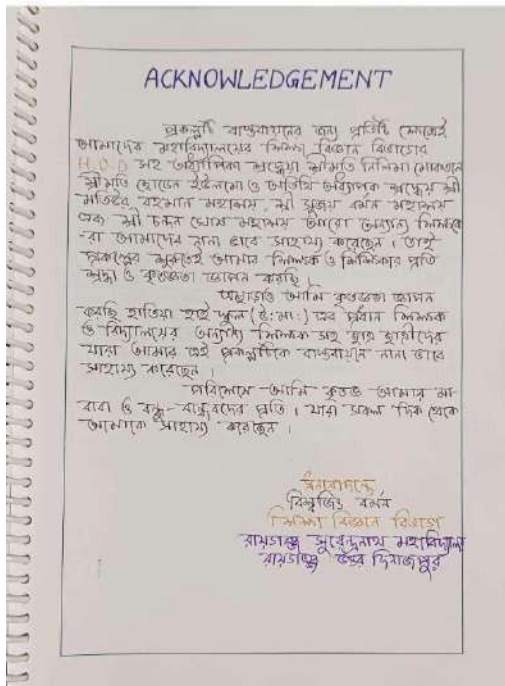 ACKNOWLEDGEMENT
প্রকল্পটি বাস্তবায়নের জন্য প্রতিটি ক্ষেত্রেই
আমাদের মহাবিদ্যালয়ের শিক্ষা বিজ্ঞান বিভাগের
H.O.D সহ অধ্যাপিকা শ্রদ্ধেয়া শ্রীমতি নিলিমা
শ্রীমতি ছোডেন ও অতিথি অধ্যাপক শ্রদ্ধেয় শ্রী
মতিউর রহমান মহাশয়, শ্রী সুজয় বর্মন মহাশয়
এবং শ্রী চন্দন ঘোষ মহাশয় আরো অন্যান্য শিক্ষক
রা আমাদের নানা ভাবে সাহায্য করেছেন। তাই
প্রকল্পের শুরুতেই আমার শিক্ষক ও শিক্ষিকার প্রতি
শ্রদ্ধা ও কৃতজ্ঞতা জ্ঞাপন করছি।
আমি কৃতজ্ঞতা জ্ঞাপন
করছি হাতিয়া হাই স্কুল (উঃ মাঃ) এর প্রধান শিক্ষক
ও বিদ্যালয়ের অন্যান্য শিক্ষক সহ ছাত্র ছাত্রীদের
যারা আমার এই প্রকল্পটিকে বাস্তবায়নে নানা ভাবে
সাহায্য করেছেন।
পরিশেষে আমি কৃতজ্ঞ আমার মা-
বাবা ও বন্ধু-বান্ধবদের প্রতি। যারা সকল দিক থেকে
আমাকে সাহায্য করেছেন।
ধন্যবাদান্তে
বিশ্বজিৎ বর্মন
শিক্ষা বিজ্ঞান বিভাগ
রায়গঞ্জ সুরেন্দ্রনাথ মহাবিদ্যালয়
রায়গঞ্জ উত্তর দিনাজপুর